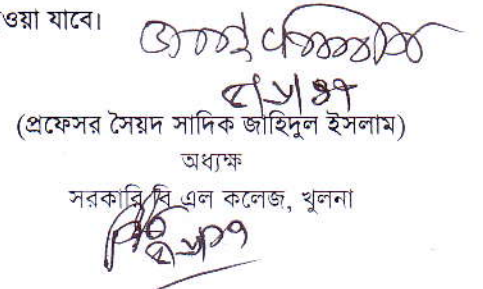 ওয়া যাবে।
(প্রফেসর সৈয়দ সাদিক জাহিদুল ইসলাম)
অধ্যক্ষ
সরকারি বি এল কলেজ, খুলনা